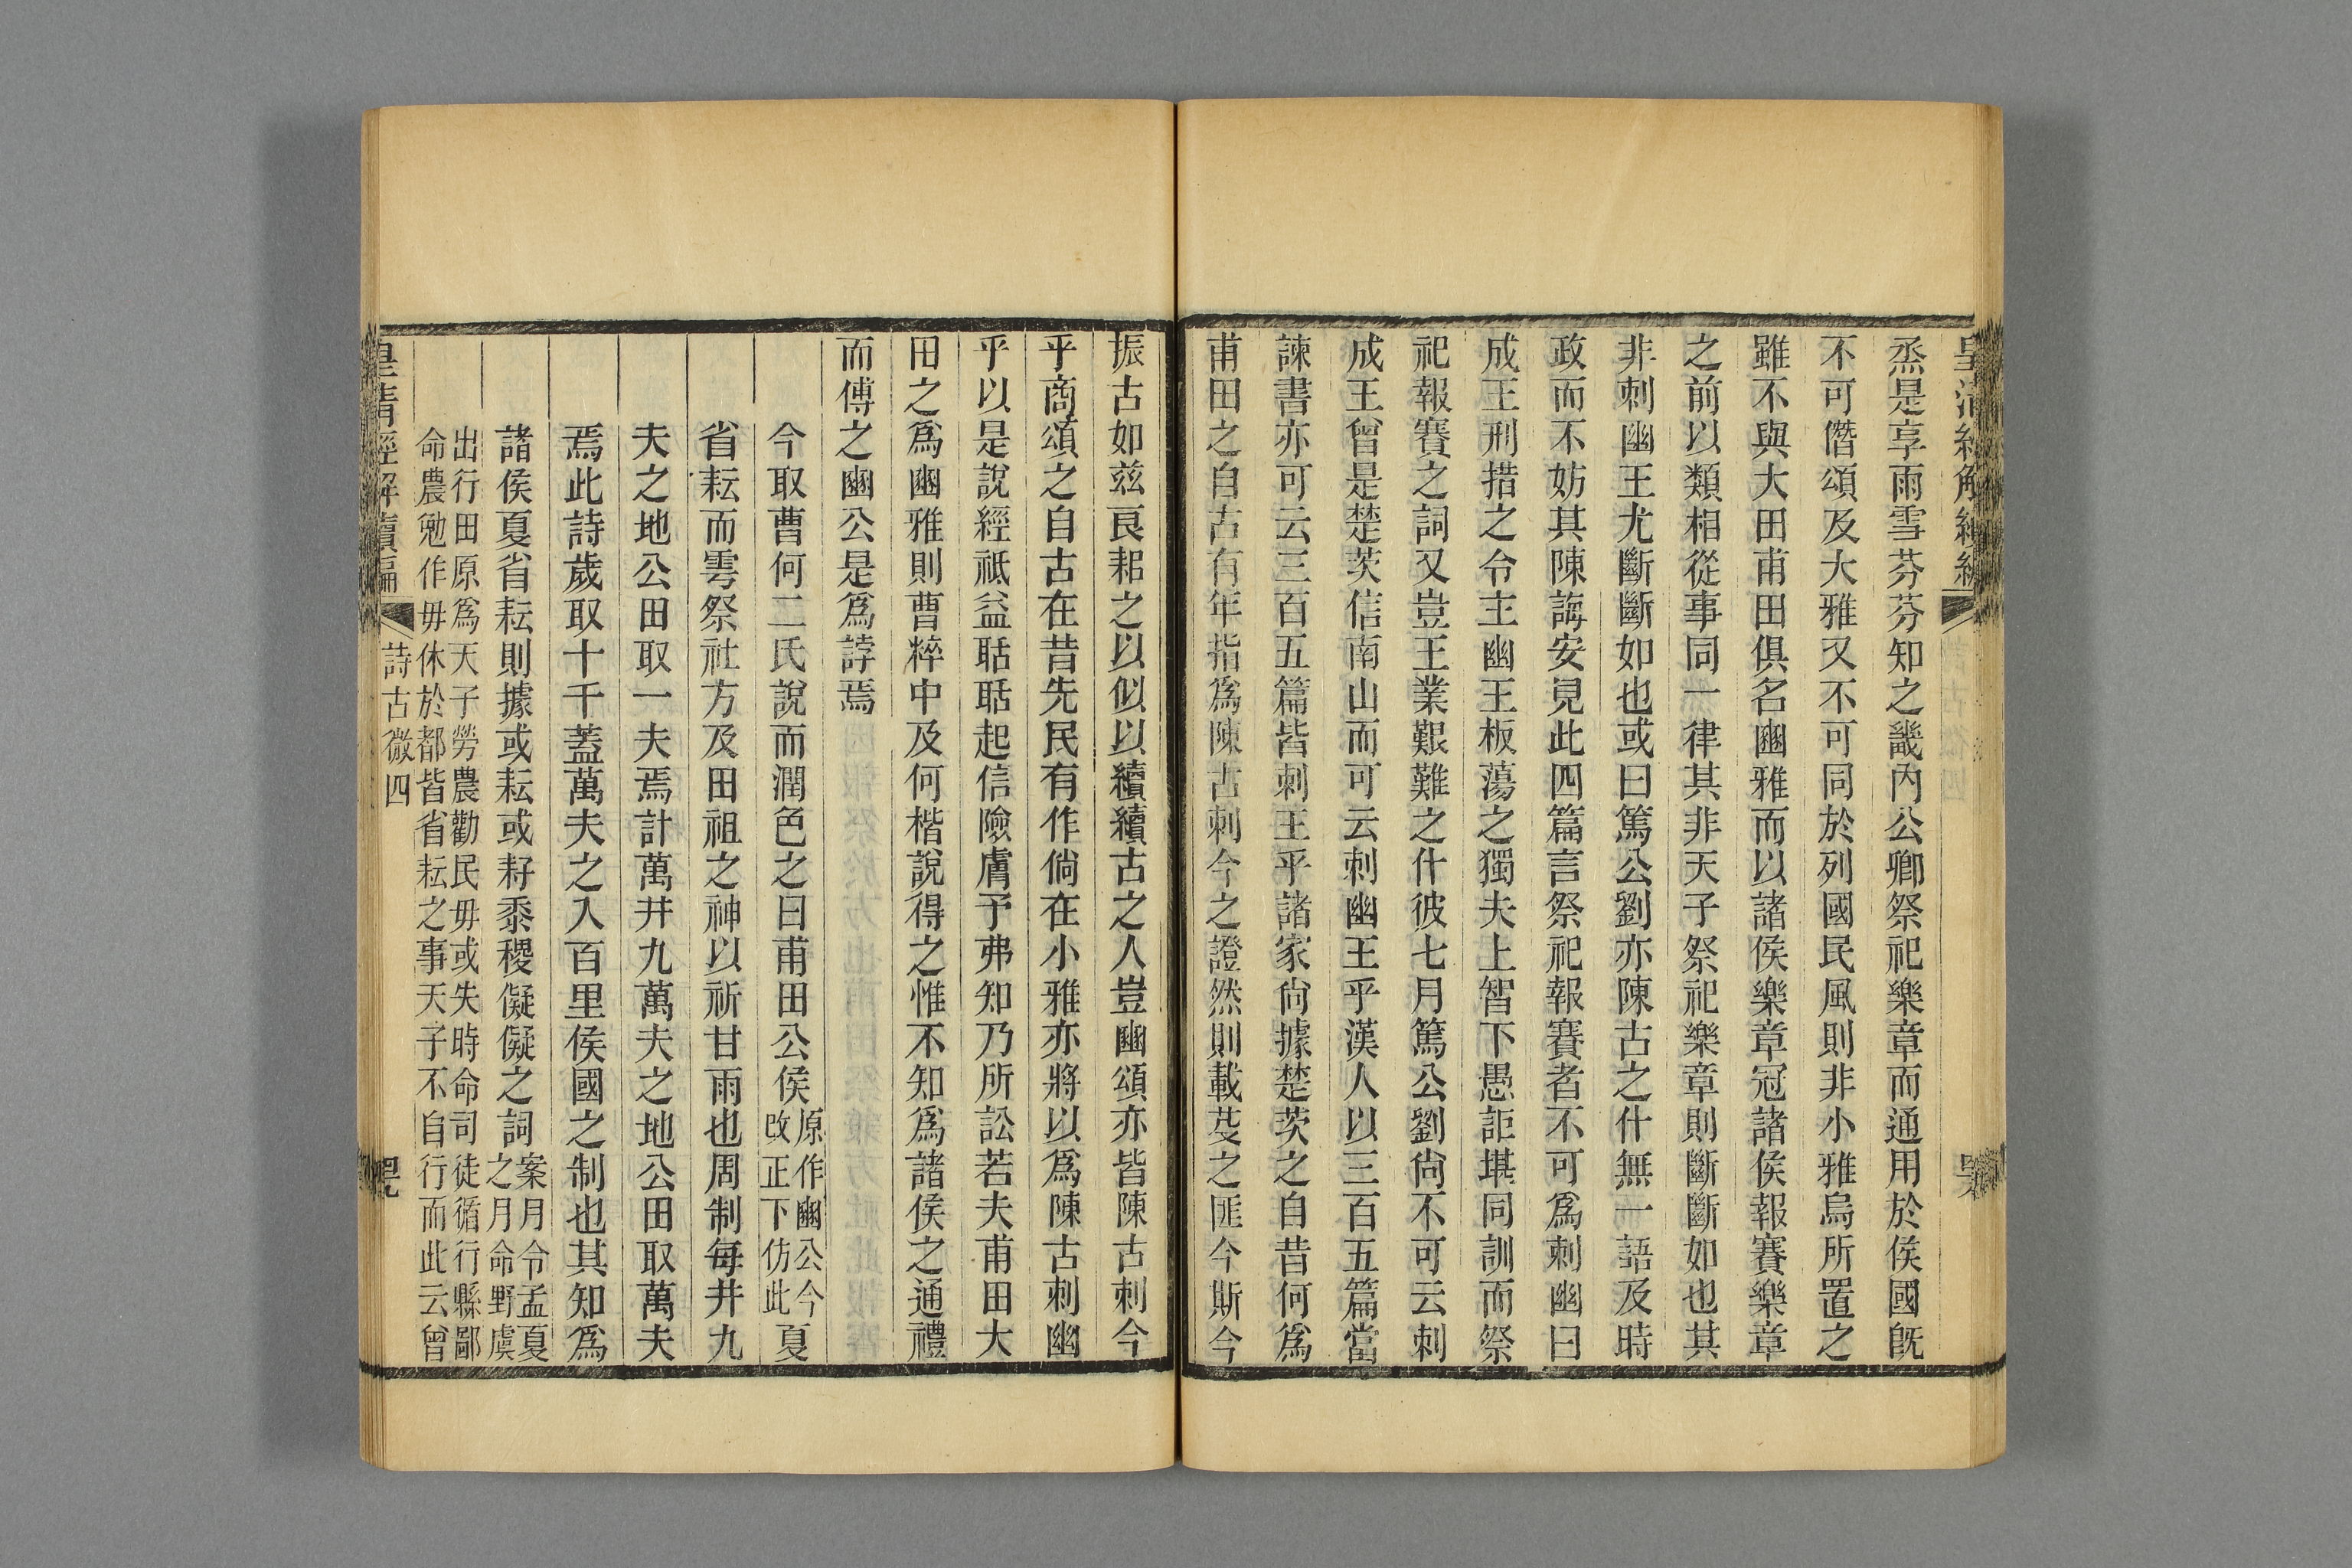 烝是享雨雪芬芬知之畿內公卿祭祀樂章而通用於侯國旣
不可僭頌及大雅又不可同於列國民風則非小雅烏所置之
雖不與大田甫田俱名豳雅而以諸侯樂章冠諸侯報賽樂章
之前以類相從事同一律其非天子祭祀樂章則斷斷如也其
非刺幽王尤斷斷如也或曰篤公劉亦陳古之什無一語及時
政而不妨其陳誨安見此四篇言祭祀報賽者不可爲刺幽曰
成王刑措之令主幽王板蕩之獨夫上智下愚詎堪同訓而祭
祀報賽之詞又豈王業艱難之什彼七月篤公劉尙不可云刺
成王曾是楚茨信南山而可云刺幽王乎漢人以三百五篇當
諫書亦可云三百五篇皆刺王乎諸家尙據楚茨之自昔何爲
甫田之自古有年指爲陳古刺今之證然則載芟之匪今斯今
振古如兹良耜之以似以續續古之人豈豳頌亦皆陳古刺今
乎商頌之自古在昔先民有作倘在小雅亦將以爲陳古刺幽
乎以是說經祗益聒聒起信險膚予弗知乃所訟若夫甫田大
田之爲豳雅則曹粹中及何楷說得之惟不知爲諸侯之通禮
而傅之豳公是爲誖焉
今取曹何二氏說而潤色之曰甫田公侯原作豳公今改正下仿此夏
省耘而雩祭社方及田祖之神以祈甘雨也周制每井九
夫之地公田取一夫焉計萬井九萬夫之地公田取萬夫
焉此詩歲取十千蓋萬夫之入百里侯國之制也其知爲
諸侯夏省耘則據或耘或耔黍稷儗儗之詞案月令孟夏之月命野虞
出行田原爲天子勞農勸民毋或失時命司徒循行縣鄙
命農勉作毋休於都皆省耘之事天子不自行而此云曾
皇清經解續編 詩古微四